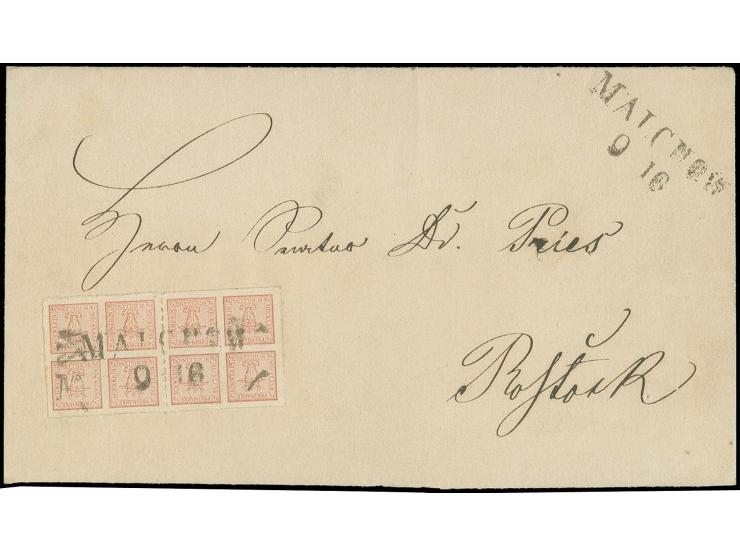 MALCHOW
9 16
Herrn Senator Dr. Pries
Rostock
MALCHOW
9 16